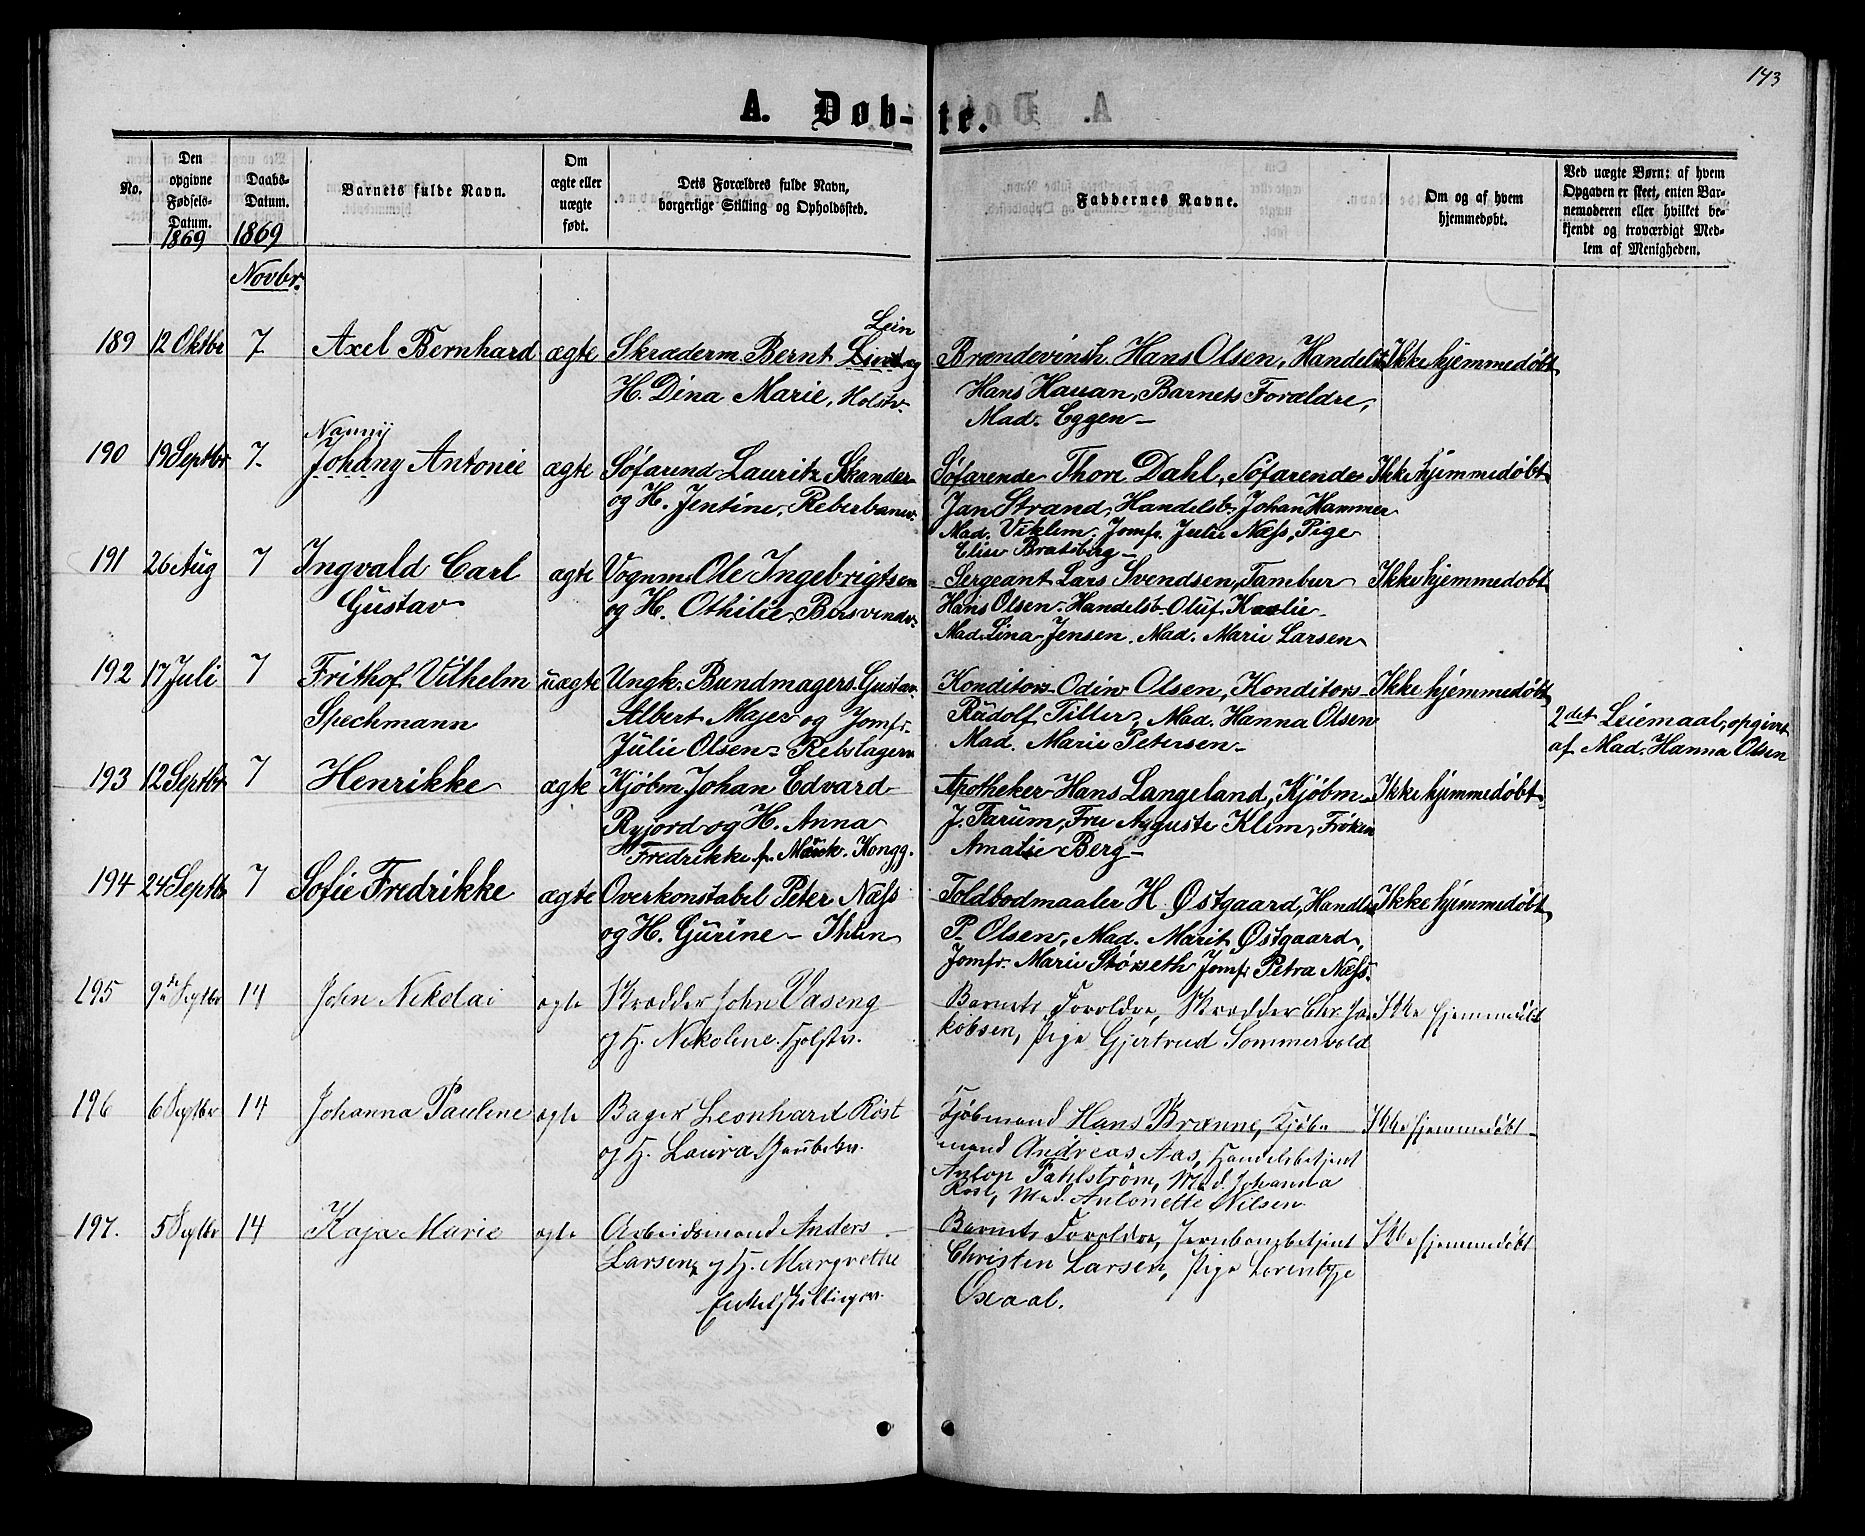 143
A. Døb-te.
No.
Den opgivne Fødsels-Datum.
1869
Daabs-Datum.
1869
Barnets fulde Navn.
Om ægte eller uægte født.
Dets Forældres fulde Navn, borgerlige Stilling og Opholdssted.
Faddernes Navne.
Om og af hvem hjemmedøbt.
Ved uægte Børn: af hvem
Opgaven er skeet, enten Bar-
nemoderen eller hvilket be-
kjendt og troværdigt Med-
lem af Menigheden.
Novbr.
Lein
189 12 Oktbr 7 Axel Bernhard ægte Skræderm. Bernt og Brændevinsh. Hans Olsen, Ikke hjemmedøbt
H. Dina Marie, Holstv. Hans Hauan, Barnets Forældre,
Mad. Eggen
Nanny
190 19 Septbr 7 Johany Antonie ægte Søfarend Lauritz Skander Søfarende Thore Dahl, Søfarende Ikke hjemmedøbt
og H. Jentine, Reberbanev. Jan Strand, Handelsb. Johan Hammer
Mad. Viklem, Jomfr. Julie Næss, Pige
Elise Bratsberg
191 26 Aug 7 Ingvald Carl ægte Vognm. Ole Ingebrigtsen Sergeant Lars Svendsen, Tambur Ikke hjemmedøbt
Gustav og H. Othilie, Hans Olsen, Handelsb. Oluf
Mad. Lina Jensen, Mad. Marie Larsen
192 17 Juli 7 Frithof Vilhelm uægte Ungk. Bundmagers. Gustav Konditors. Odin Olsen, Konditors. Ikke hjemmedøbt
Spechmann Albert Majer og Jomfr. Rudolf Tiller, Mad. Hanna Olsen 2det Leiemaal, opgivet
Julie Olsen - Rebslagerv Mad. Marie Petersen af Mad. Hanna Olsen
193 12 Septbr 7 Henrikke ægte Kjøbm. Johan Edvard Apotheker Hans Langeland, Kjøbm. Ikke hjemmedøbt
Ryjord og H. Anna J. Farum, Fru Auguste Klim, Frøken
Fredrikke f. Kongg. Amalie Berg
194 24 Septbr 7 Sofie Fredrikke ægte Overkonstabel Peter Næss Toldbodmaaler H. Østgaard, Ikke hjemmedøbt
og H. Gurine - Ihlen P. Olsen, Mad. Marit Østgaard,
Jomfr. Marie Størseth, Jomfr. Petra Næss.
195 9de Septbr 14 John Nikolai ægte Skrædder John Vaseng Barnets Forældre, Skrædder Chr. Ja- Ikke hjemmedøbt
og H. Nikoline. Holstv. kobsen, Pige Gjertrud Sommervold
196 6 Septbr 14 Johanna Pauline ægte Bager Leonhard Röst Kjøbmand Hans Brænne, Kjøb- Ikke hjemmedøbt
og H. Laura, Grubebv. mand Andreas Aas, Handelsbetjent
Anton Pahlström, Mad. Johanna
Röst, Mad. Antonette Nilsen.
197. 5 Septbr 14 Kaja Marie ægte Arbeidsmand Anders Barnets Forældre, Jernbanebetjent Ikke hjemmedøbt
Larsen og H. Margrethe Christen Larsen, Pige Lorentze
Enkelskillingsv. Oxaal.